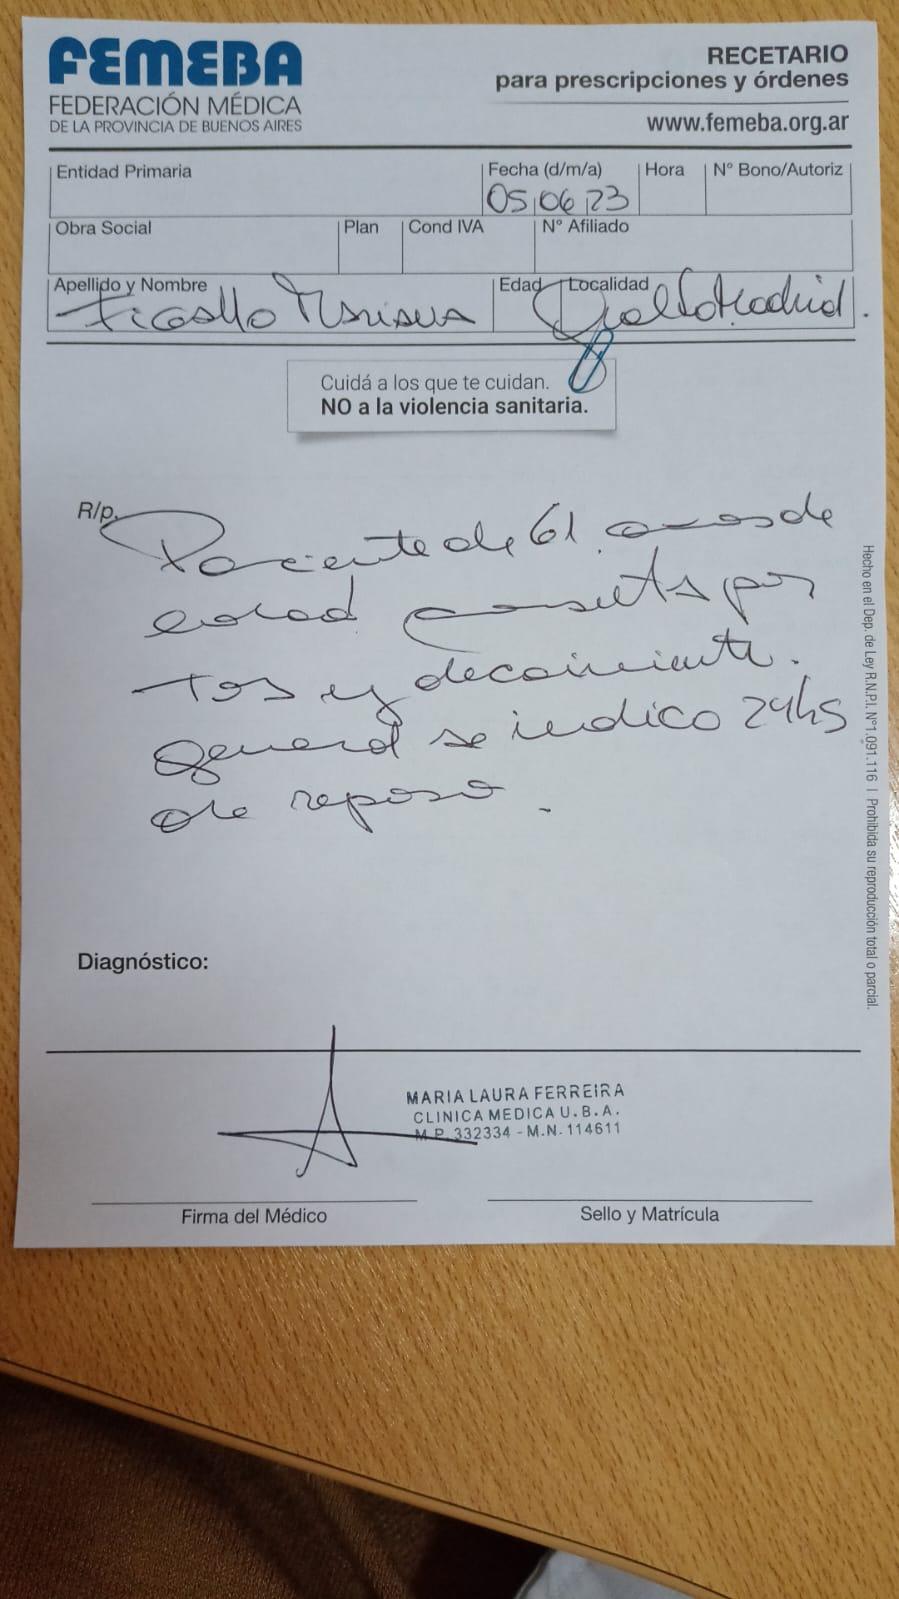 FEMEBA
FEDERACIÓN MÉDICA
DE LA PROVINCIA DE BUENOS AIRES
RECETARIO
para prescripciones y órdenes
www.femeba.org.ar
Entidad Primaria
Fecha (d/m/a)
05 06 23
Hora
N° Bono/Autoriz
Obra Social
Plan
Cond IVA
N° Afiliado
Apellido y Nombre
Mariana
Edad
Localidad
Cuidá a los que te cuidan.
NO a la violencia sanitaria.
R/p.
Paciente de 61 anos de
edad consulta por
tos y decaimiento.
general se indico 24hs
de reposo.
Diagnóstico:
MARIA LAURA FERREIRA
CLINICA MEDICA U.B.A.
M.P. 332334 - M.N. 114611
Firma del Médico
Sello y Matrícula
Hecho en el Dep. de Ley R.N.P.I. N°1.091.116 | Prohibida su reproducción total o parcial.